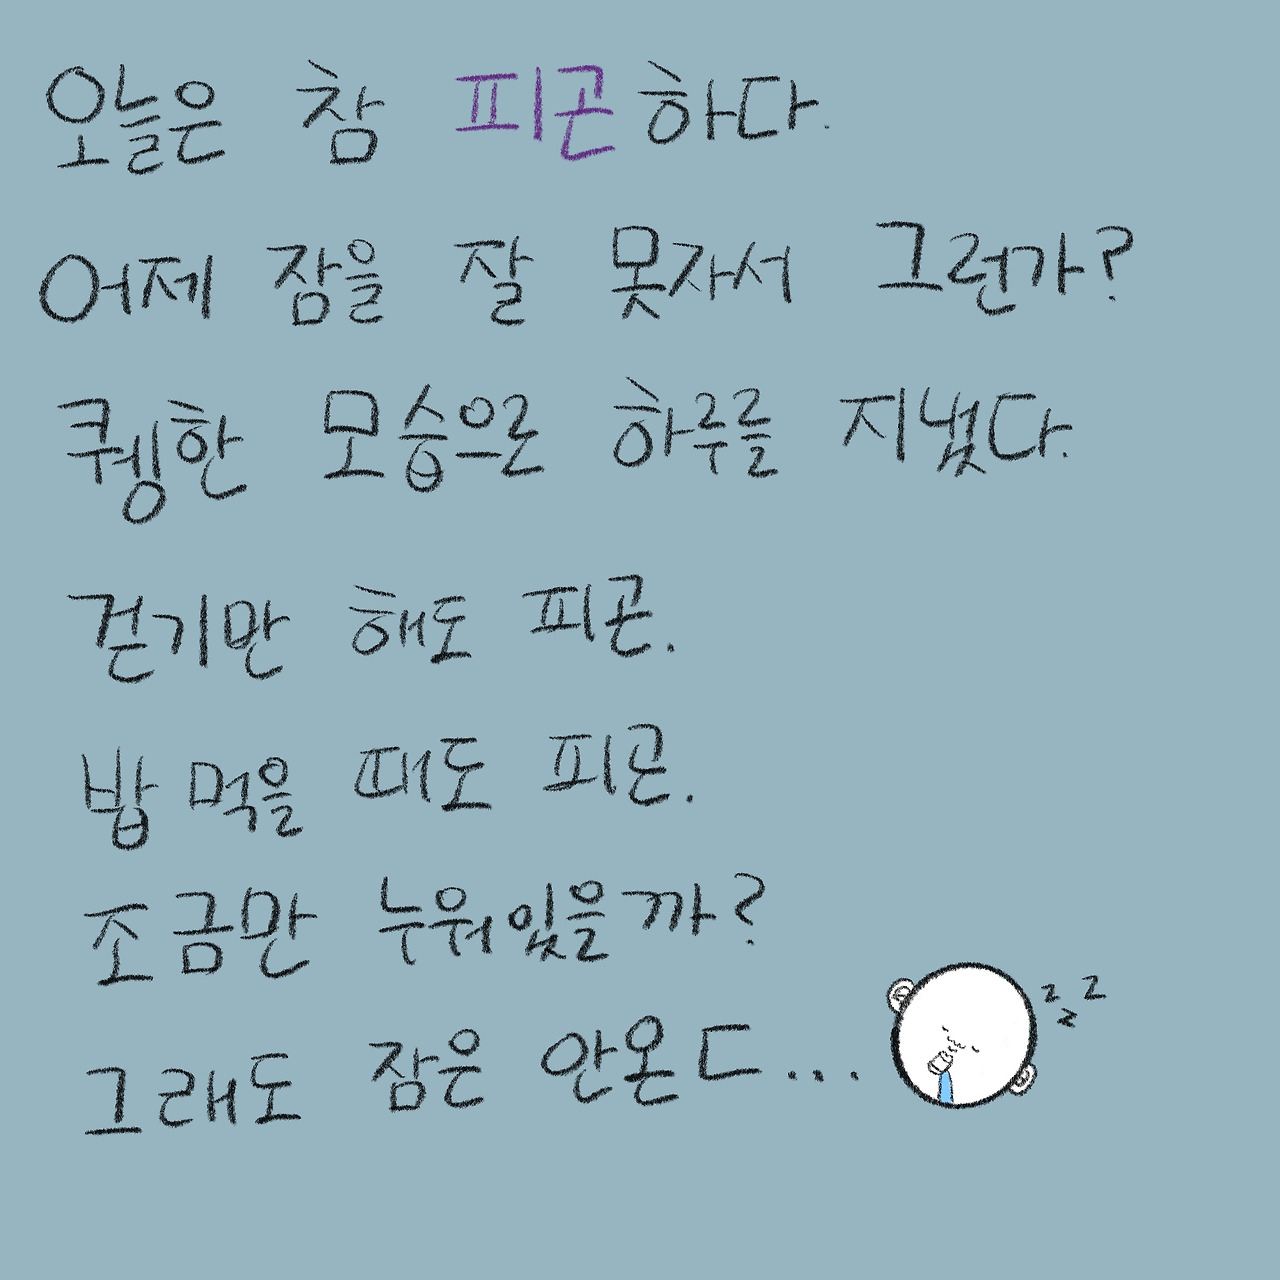 오늘은 참 피곤하다.
어제 잠을 잘 못자서 그런가?
퀭한 모습으로 하루를 지냈다.
걷기만 해도 피곤.
밥 먹을 때도 피곤.
조금만 누워있을까?
그래도 잠은 안온ㄷ...
z z z